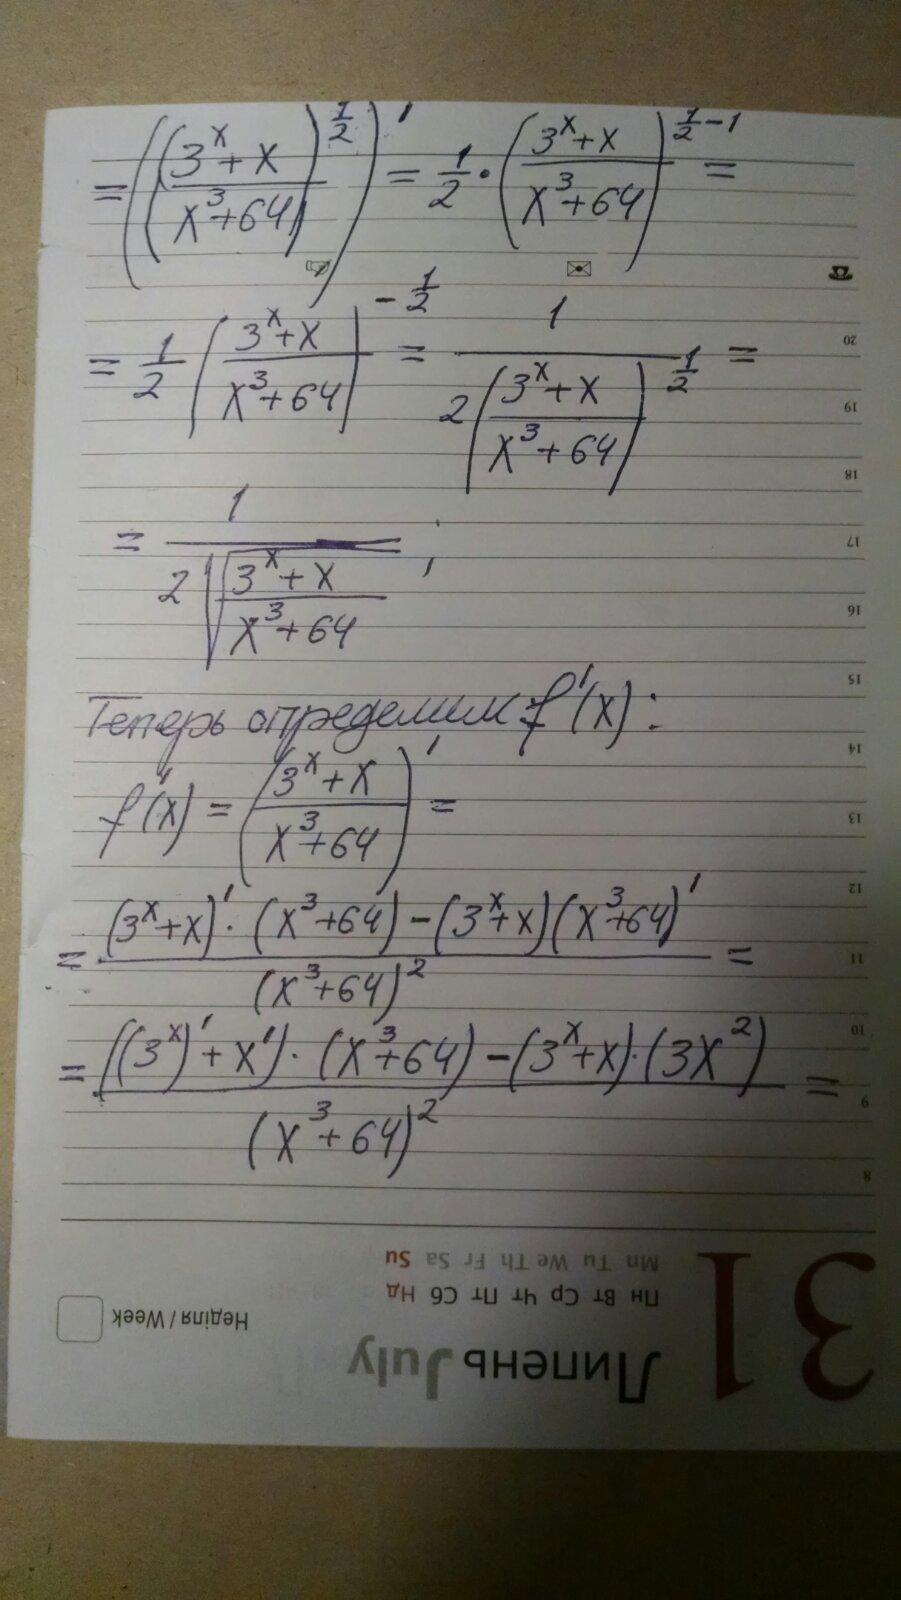 = (((3^x + x)/(x^3 + 64))^(1/2))' = 1/2 · ((3^x + x)/(x^3 + 64))^(1/2 - 1) =
= 1/2 ((3^x + x)/(x^3 + 64))^(-1/2) = 1/(2((3^x + x)/(x^3 + 64))^(1/2)) =
= 1/(2√((3^x + x)/(x^3 + 64))) ;
Теперь определим f'(x):
f'(x) = ((3^x + x)/(x^3 + 64))' =
= ((3^x + x)' · (x^3 + 64) - (3^x + x)(x^3 + 64)')/(x^3 + 64)^2 =
= (((3^x)' + x') · (x^3 + 64) - (3^x + x) · (3x^2))/(x^3 + 64)^2 =
20
19
18
17
16
15
14
13
12
11
10
9
8
31
Mn Tu We Th Fr Sa Su
Пн Вт Ср Чт Пт Сб Нд
Неділя / Week
Липень July